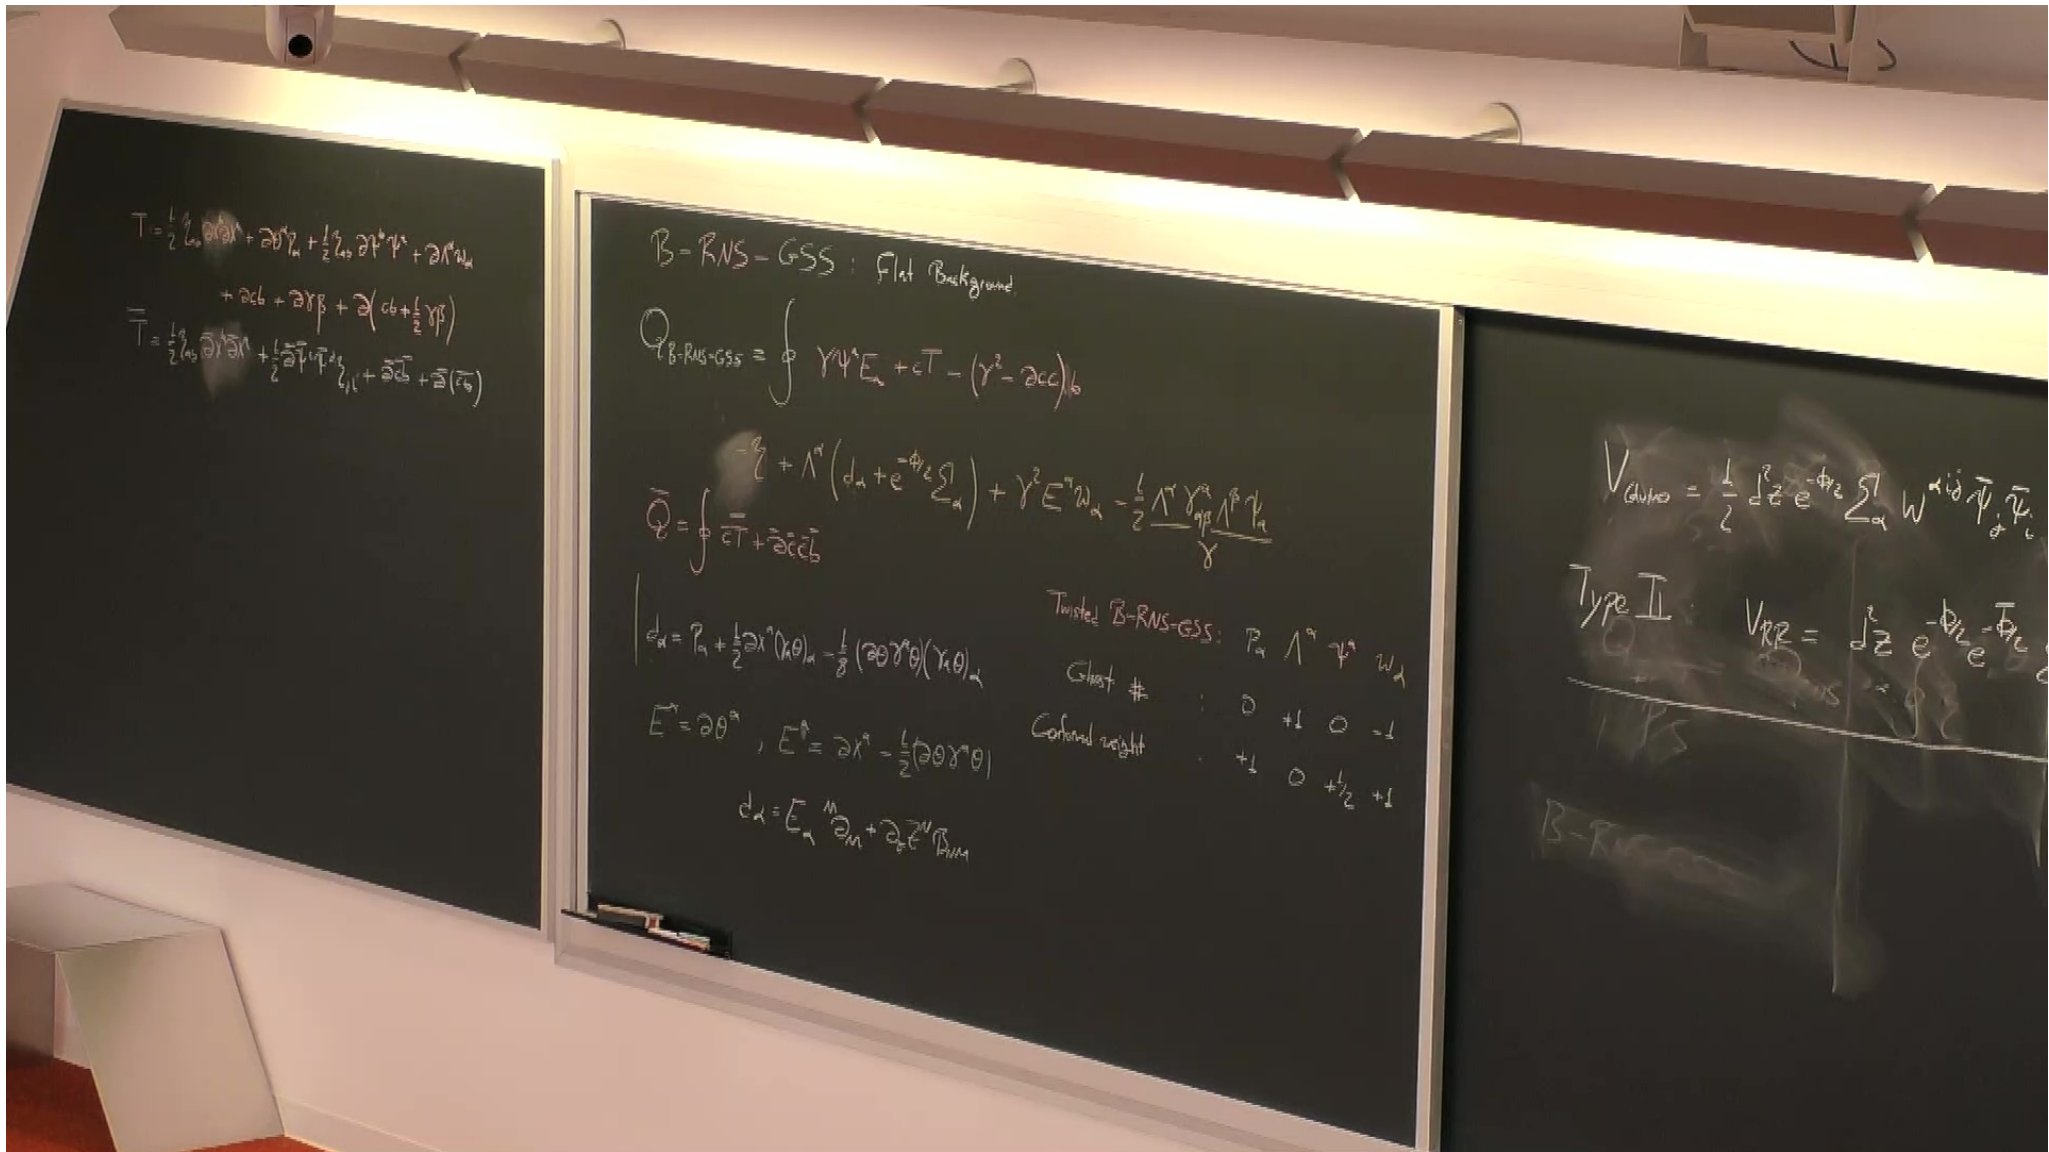 T = 1/2 η_ab ∂x^a ∂x^b + ∂θ^α p_α + 1/2 η_ab ∂ψ^b ψ^a + ∂Λ^α w_α
+ ∂cb + ∂γβ + ∂(cb + 1/2 γβ)
T̄ = 1/2 η_ab ∂̄x^b ∂̄x^a + 1/2 ∂̄ψ̄ ψ̄ η + ∂̄c̄b̄ + ∂̄(c̄b̄)
B-RNS-GSS : Flat Background.
Q_B-RNS-GSS = ∮ γψ^a E_a + cT - (γ² - ∂cc)b
-η + Λ^α (d_α + e^{-φ/2} Σ_α) + γ² E^α w_α - 1/2 Λ^α γ^a_αβ Λ^β ψ_a / γ
Q̄ = ∮ c̄T̄ + ∂̄c̄c̄b̄
d_α = P_α + 1/2 ∂x^a (γ_a θ)_α - 1/8 (∂θγ^aθ)(γ_aθ)_α
E^α = ∂θ^α , E^a = ∂x^a - 1/2 (∂θγ^aθ)
d_α = E_α^M ∂_M + ∂_z Z^N B_NM
Twisted B-RNS-GSS: P_α Λ^α ψ^a w_α
Ghost # : 0 +1 0 -1
Conformal weight : +1 0 +1/2 +1
V = 1/2 d²z e^{-φ/2} Σ_α W^{αij} ψ̄_j ψ̄_i
Type II : V_RR = d²z e^{-φ/2} e^{-φ̄/2}
B-RNS